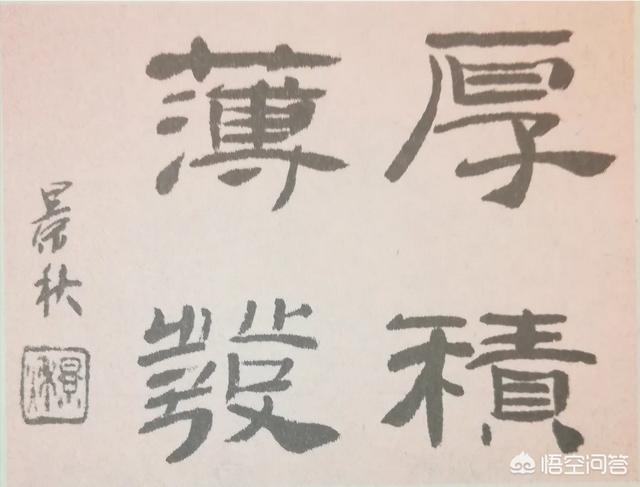 厚積
薄發
景秋
悟空问答